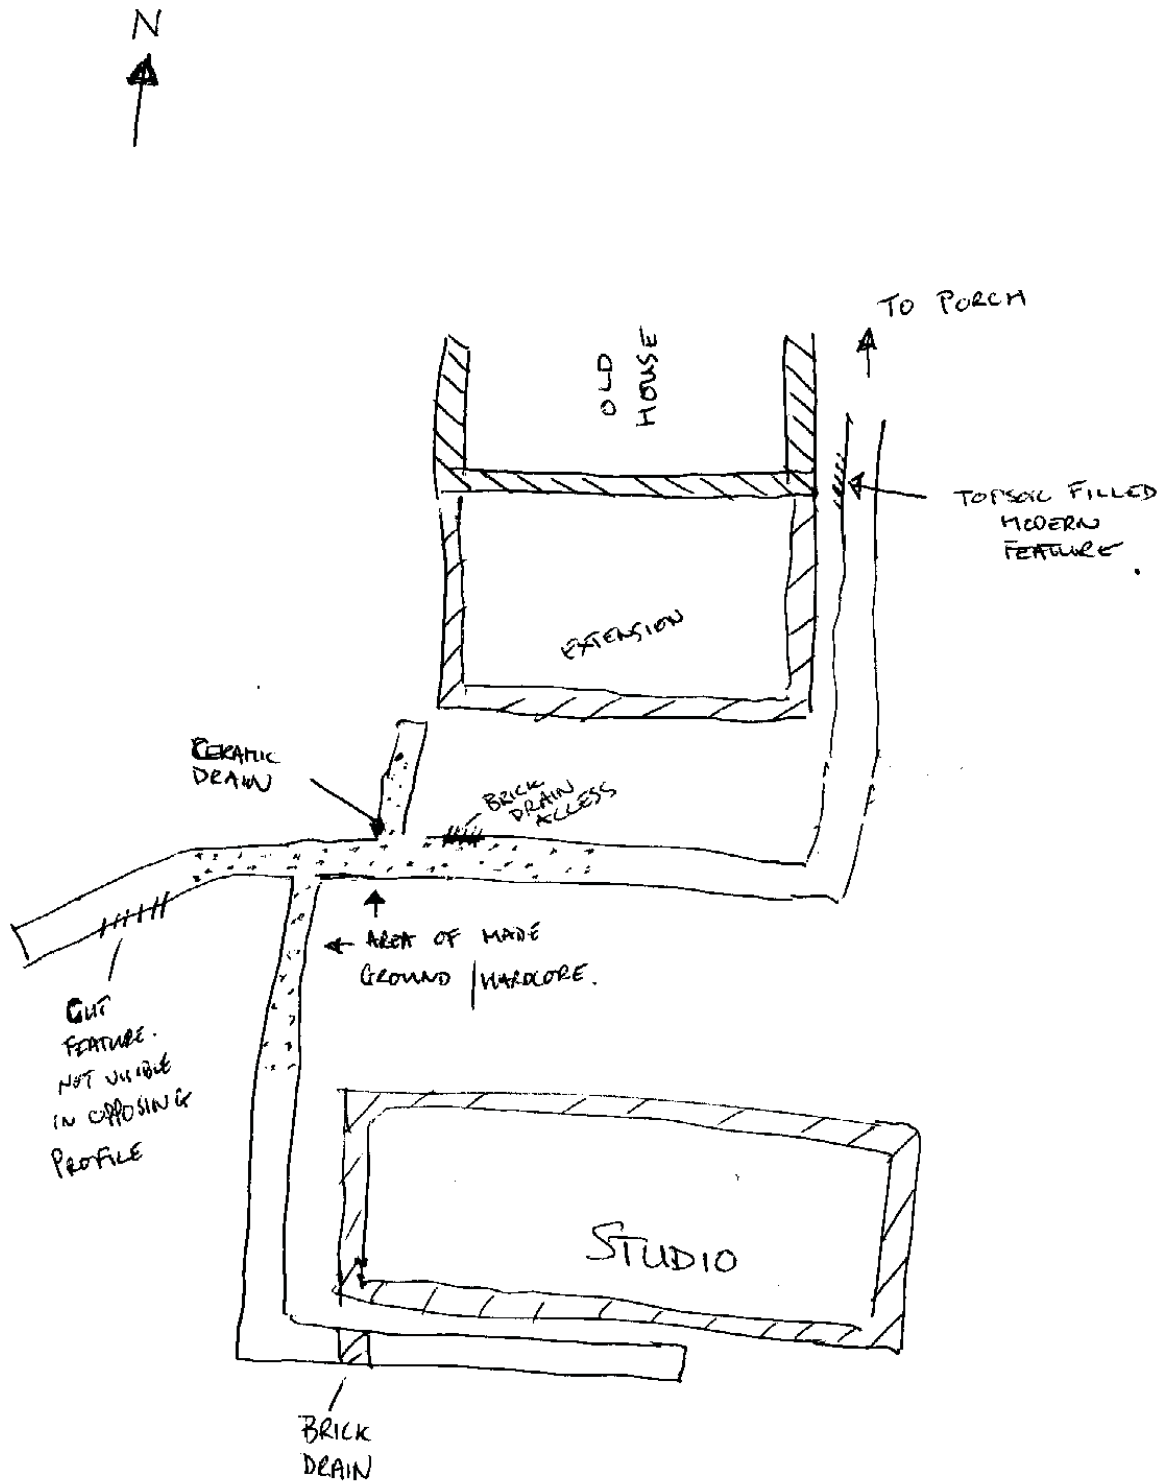 N
TO PORCH
OLD
HOUSE
TOPSOIL FILLED
MODERN
FEATURE.
EXTENSION
CERAMIC
DRAIN
BRICK
DRAIN
ACCESS
AREA OF MADE
GROUND / HARDCORE.
CUT
FEATURE.
NOT VISIBLE
IN OPPOSING
PROFILE
STUDIO
BRICK
DRAIN